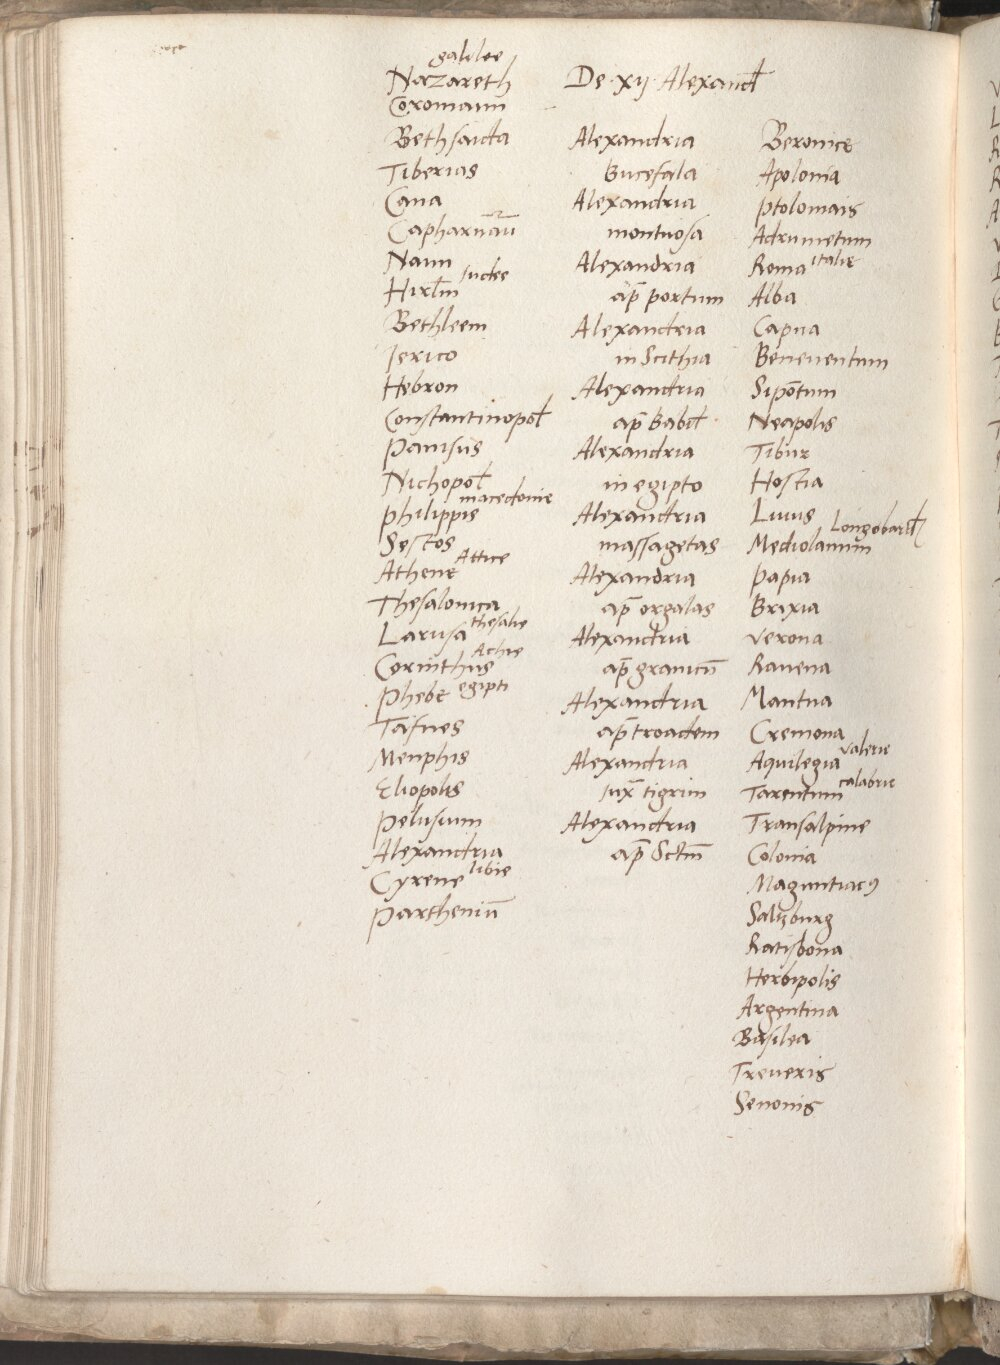 galilee
Nazareth
Coromaim
Bethsaida
Tiberias
Cana
Capharnāū
Naim
iudee
Hirłm
Bethleem
Jerico
Hebron
Constantinopoł
Parisus
Nichopoł
macedonie
Philippis
Sestos
Athene Attice
Thesalonica
Larusa thesalie
Achie
Corinthus
Phebe egipti
Tafnes
Menphis
Eliopolis
Pelusium
Alexandria
Cyrene libie
Partheniū
De ·xij· Alexandł
Alexandria
Bucefala
Alexandria
montuosa
Alexandria
ap̄ portum
Alexandria
in Scithia
Alexandria
ap̄ babił
Alexandria
in egipto
Alexandria
massagetas
Alexandria
ap̄ orgalas
Alexandria
ap̄ granicū
Alexandria
ap̄ troadem
Alexandria
iux̄ tigrim
Alexandria
ap̄
Beronice
Apolonia
Ptolomais
Adrumetum
Roma italie
Alba
Capua
Beneuentum
Sipōtum
Neapolis
Tibur
Hostia
Luuis
Longobard
Mediolanum
Papia
Brixia
Verona
Rauena
Mantua
Cremona
Aquilegia valerie
Tarentum calabrie
Transalpine
Colonia
Maguntiacꝰ
Saltzburg
Ratisbona
Herbipolis
Argentina
Basilea
Treueris
Senonis